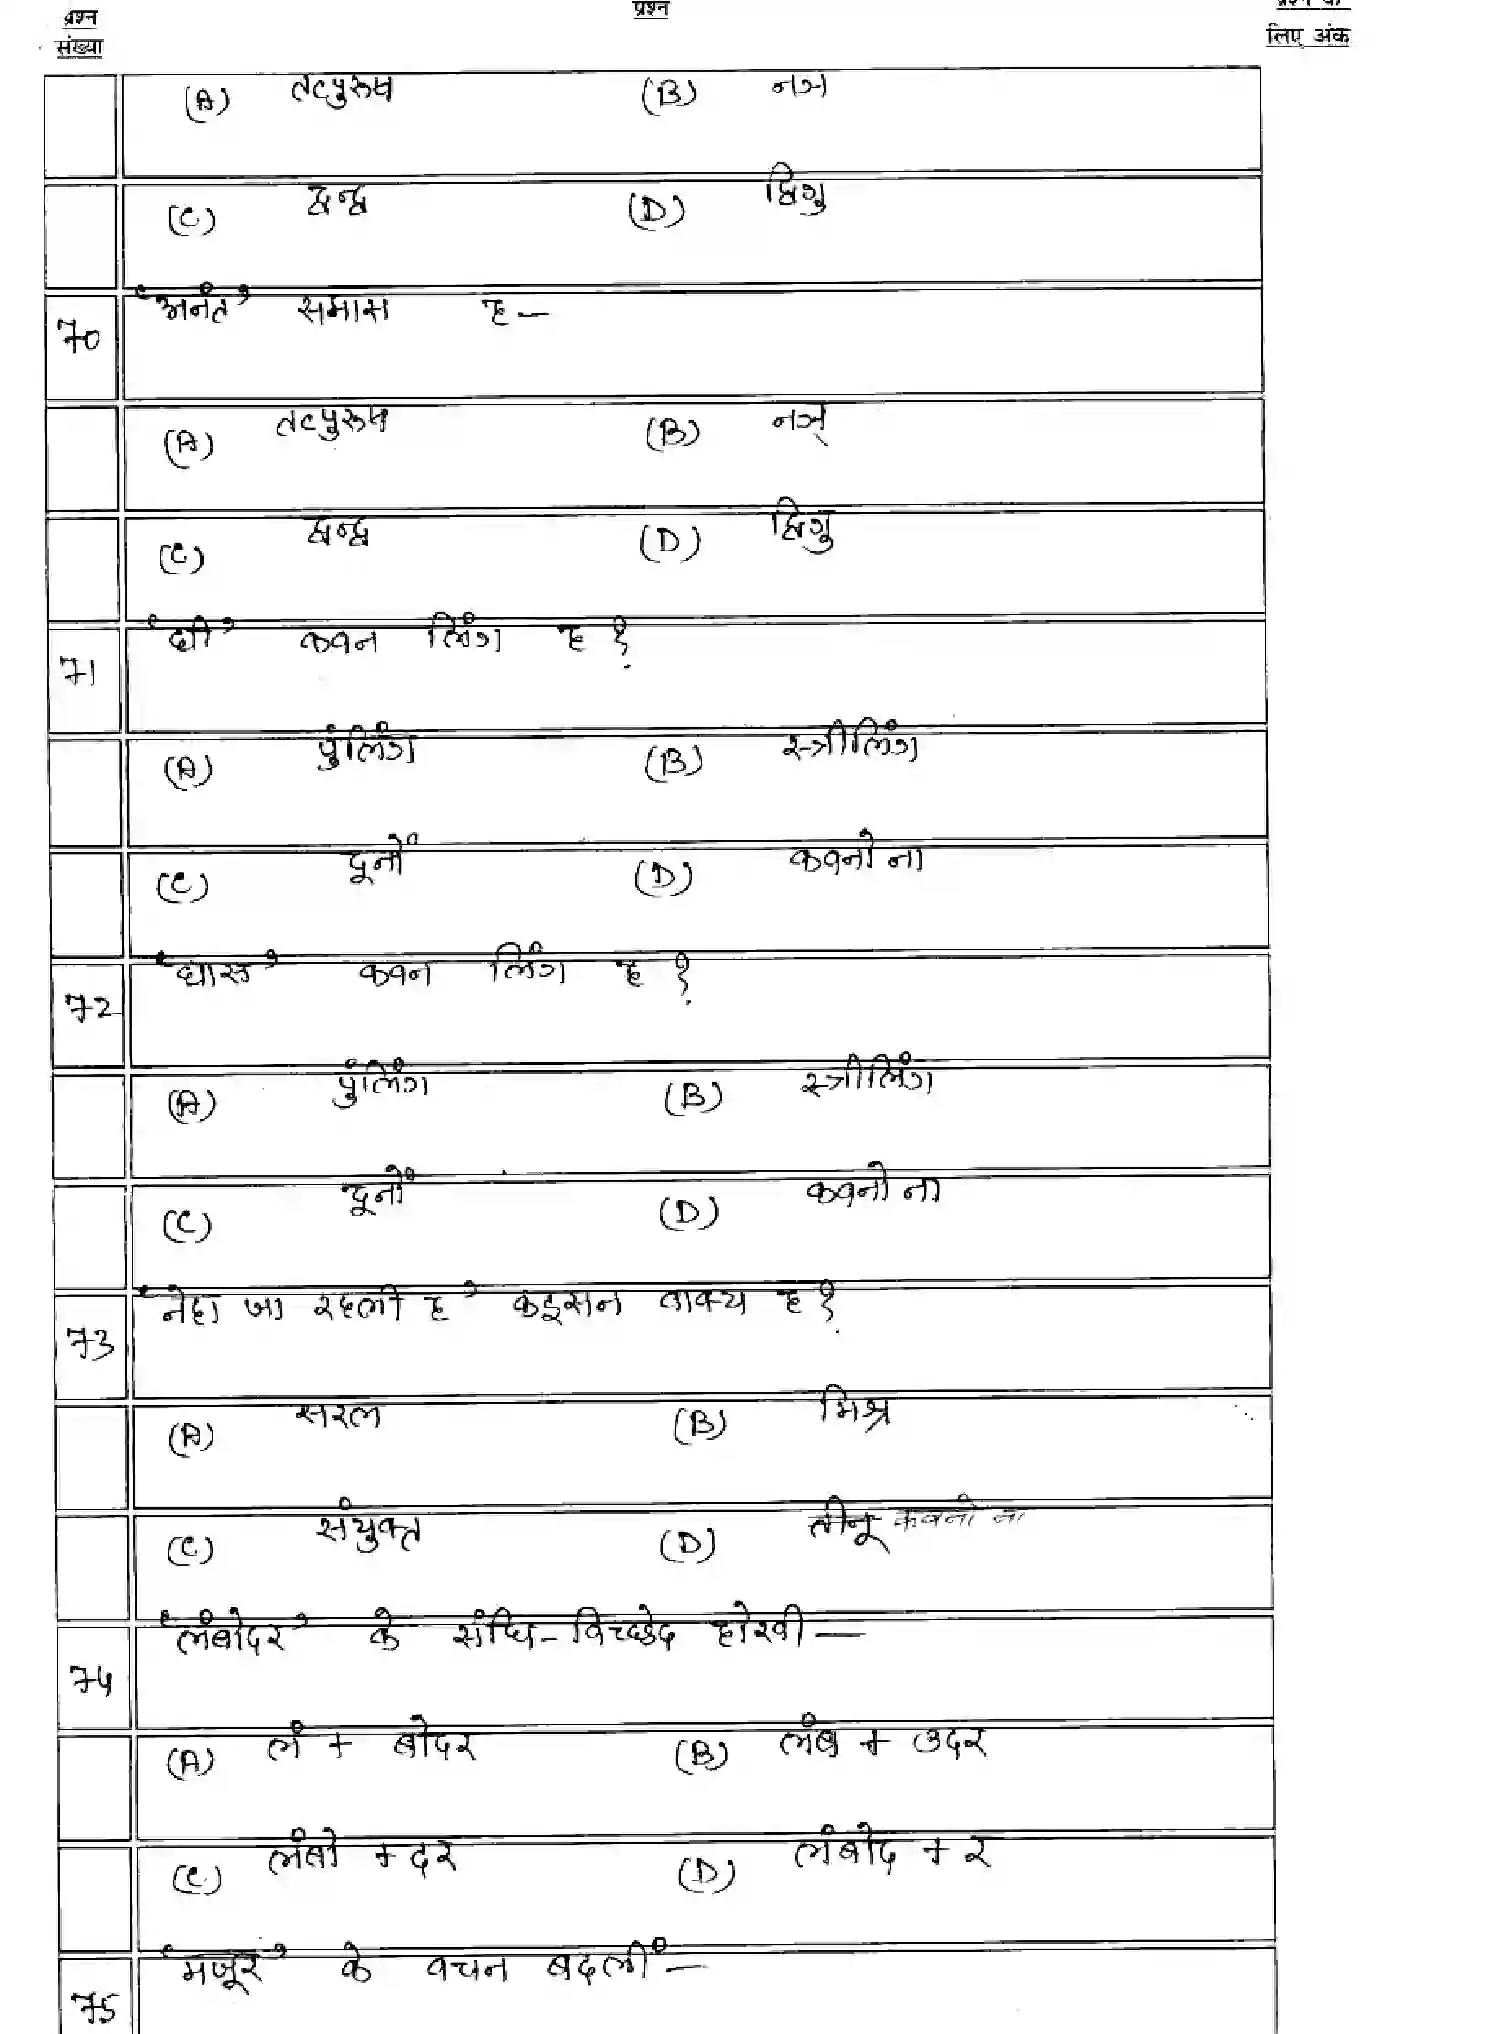 प्रश्न
संख्या
प्रश्न
लिए अंक
(A) तत्पुरूष (B) नञ
(C) द्वन्द्व (D) द्विगु
70 'अनंत' समास ह—
(A) तत्पुरूष (B) नञ्
(C) द्वन्द्व (D) द्विगु
71 कवन लिंग ह ?
(A) पुंलिंग (B) स्त्रीलिंग
(C) दूनों (D) कवनो ना
72 कवन लिंग ह ?
(A) पुंलिंग (B) स्त्रीलिंग
(C) दूनों (D) कवनो ना
73 'नेहा जा रहली ह' कइसन वाक्य ह ?
(A) सरल (B) मिश्र
(C) संयुक्त (D) तीनू कवनो ना
74 'लंबोदर' के संधि-विच्छेद होखी —
(A) लं + बोदर (B) लंब + उदर
(C) लंबो + दर (D) लंबोद + र
75 'मजूर' के वचन बदलीं —